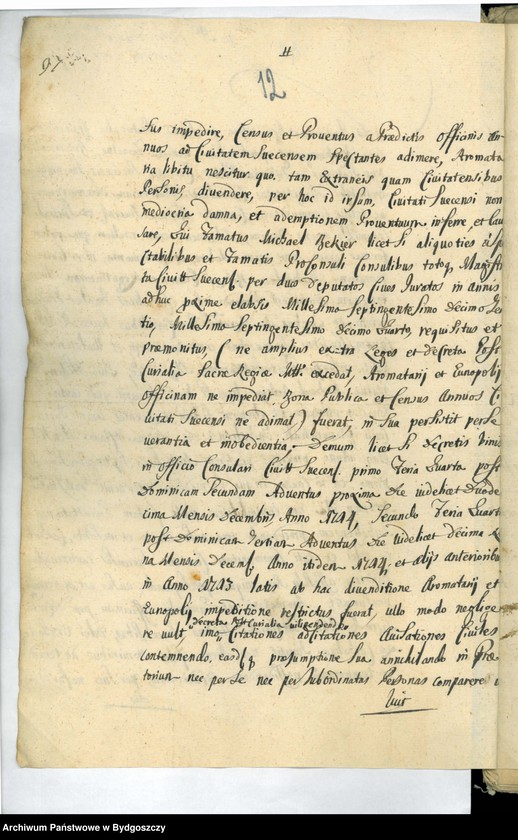 12
sus impedire, Census et Proventus a Praedictis Officinis An
nuos ad Civitatem Suecensem Spectantes adimere, Aromata
ria libitu nescitur quo. tam Extraneis quam Civitatensibus
Personis, divendere, per hoc id ipsum, Civitati Suecensi non
mediocria damna, et ademptionem Proventuum inferre, et Cau
sare, Qui Famatus Michael Bekier licet Si aliquoties a Spe
ctabilibus et Famatis Proconsuli Consulibus totoq Magistra
tu Civitt Suecens. per duos Deputatos Cives Juratos in Annis
adhuc proxime elapsis Millesimo Septingentesimo decimo Ter
tio, Millesimo Septingentesimo decimo Quarto, requisitus et
praemonitus, (ne amplius extra Leges et decreta Post
Curialia Sacrae Regiae Mtt. excedat, Aromatarij et Eunopolij
Officinam ne impediat Bona Publica et Census Annuos Ci
vitati Suecensi ne adimat) fuerat, in Sua persistit perse
verantia et inobedientia; Demum licet Si Decretis binis
in officio Consulari Civitt Suecens. primo Feria Quarta post
Dominicam Secundam Adventus proxima die videlicet Duode
cima Mensis Decembris Anno 1714, Secundo Feria Quarta
post Dominicam Tertiam Adventus Die videlicet decima no
na Mensis Decens. Anno itidem 1714. et alijs anterioribus
in Anno 1713 latis ab hac divenditione Aromatarij et
Eunopolij impetitione restrictus fuerat, ullo modo neglige
Decreta Curialia
re vult imo, Citationes adcitationes Civiles
contemnendo, easdq praesumptione Sua annihilando in Prae
torium nec per se nec per Subordinatas Personas comparere
Archiwum Państwowe w Bydgoszczy